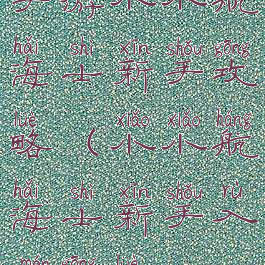 hǎi shì xīn shǒu gōng
海士新手攻
lüè xiǎo xiǎo háng
略（小小航
hǎi shì xīn shǒu rù
海士新手入
mén gōng lüè